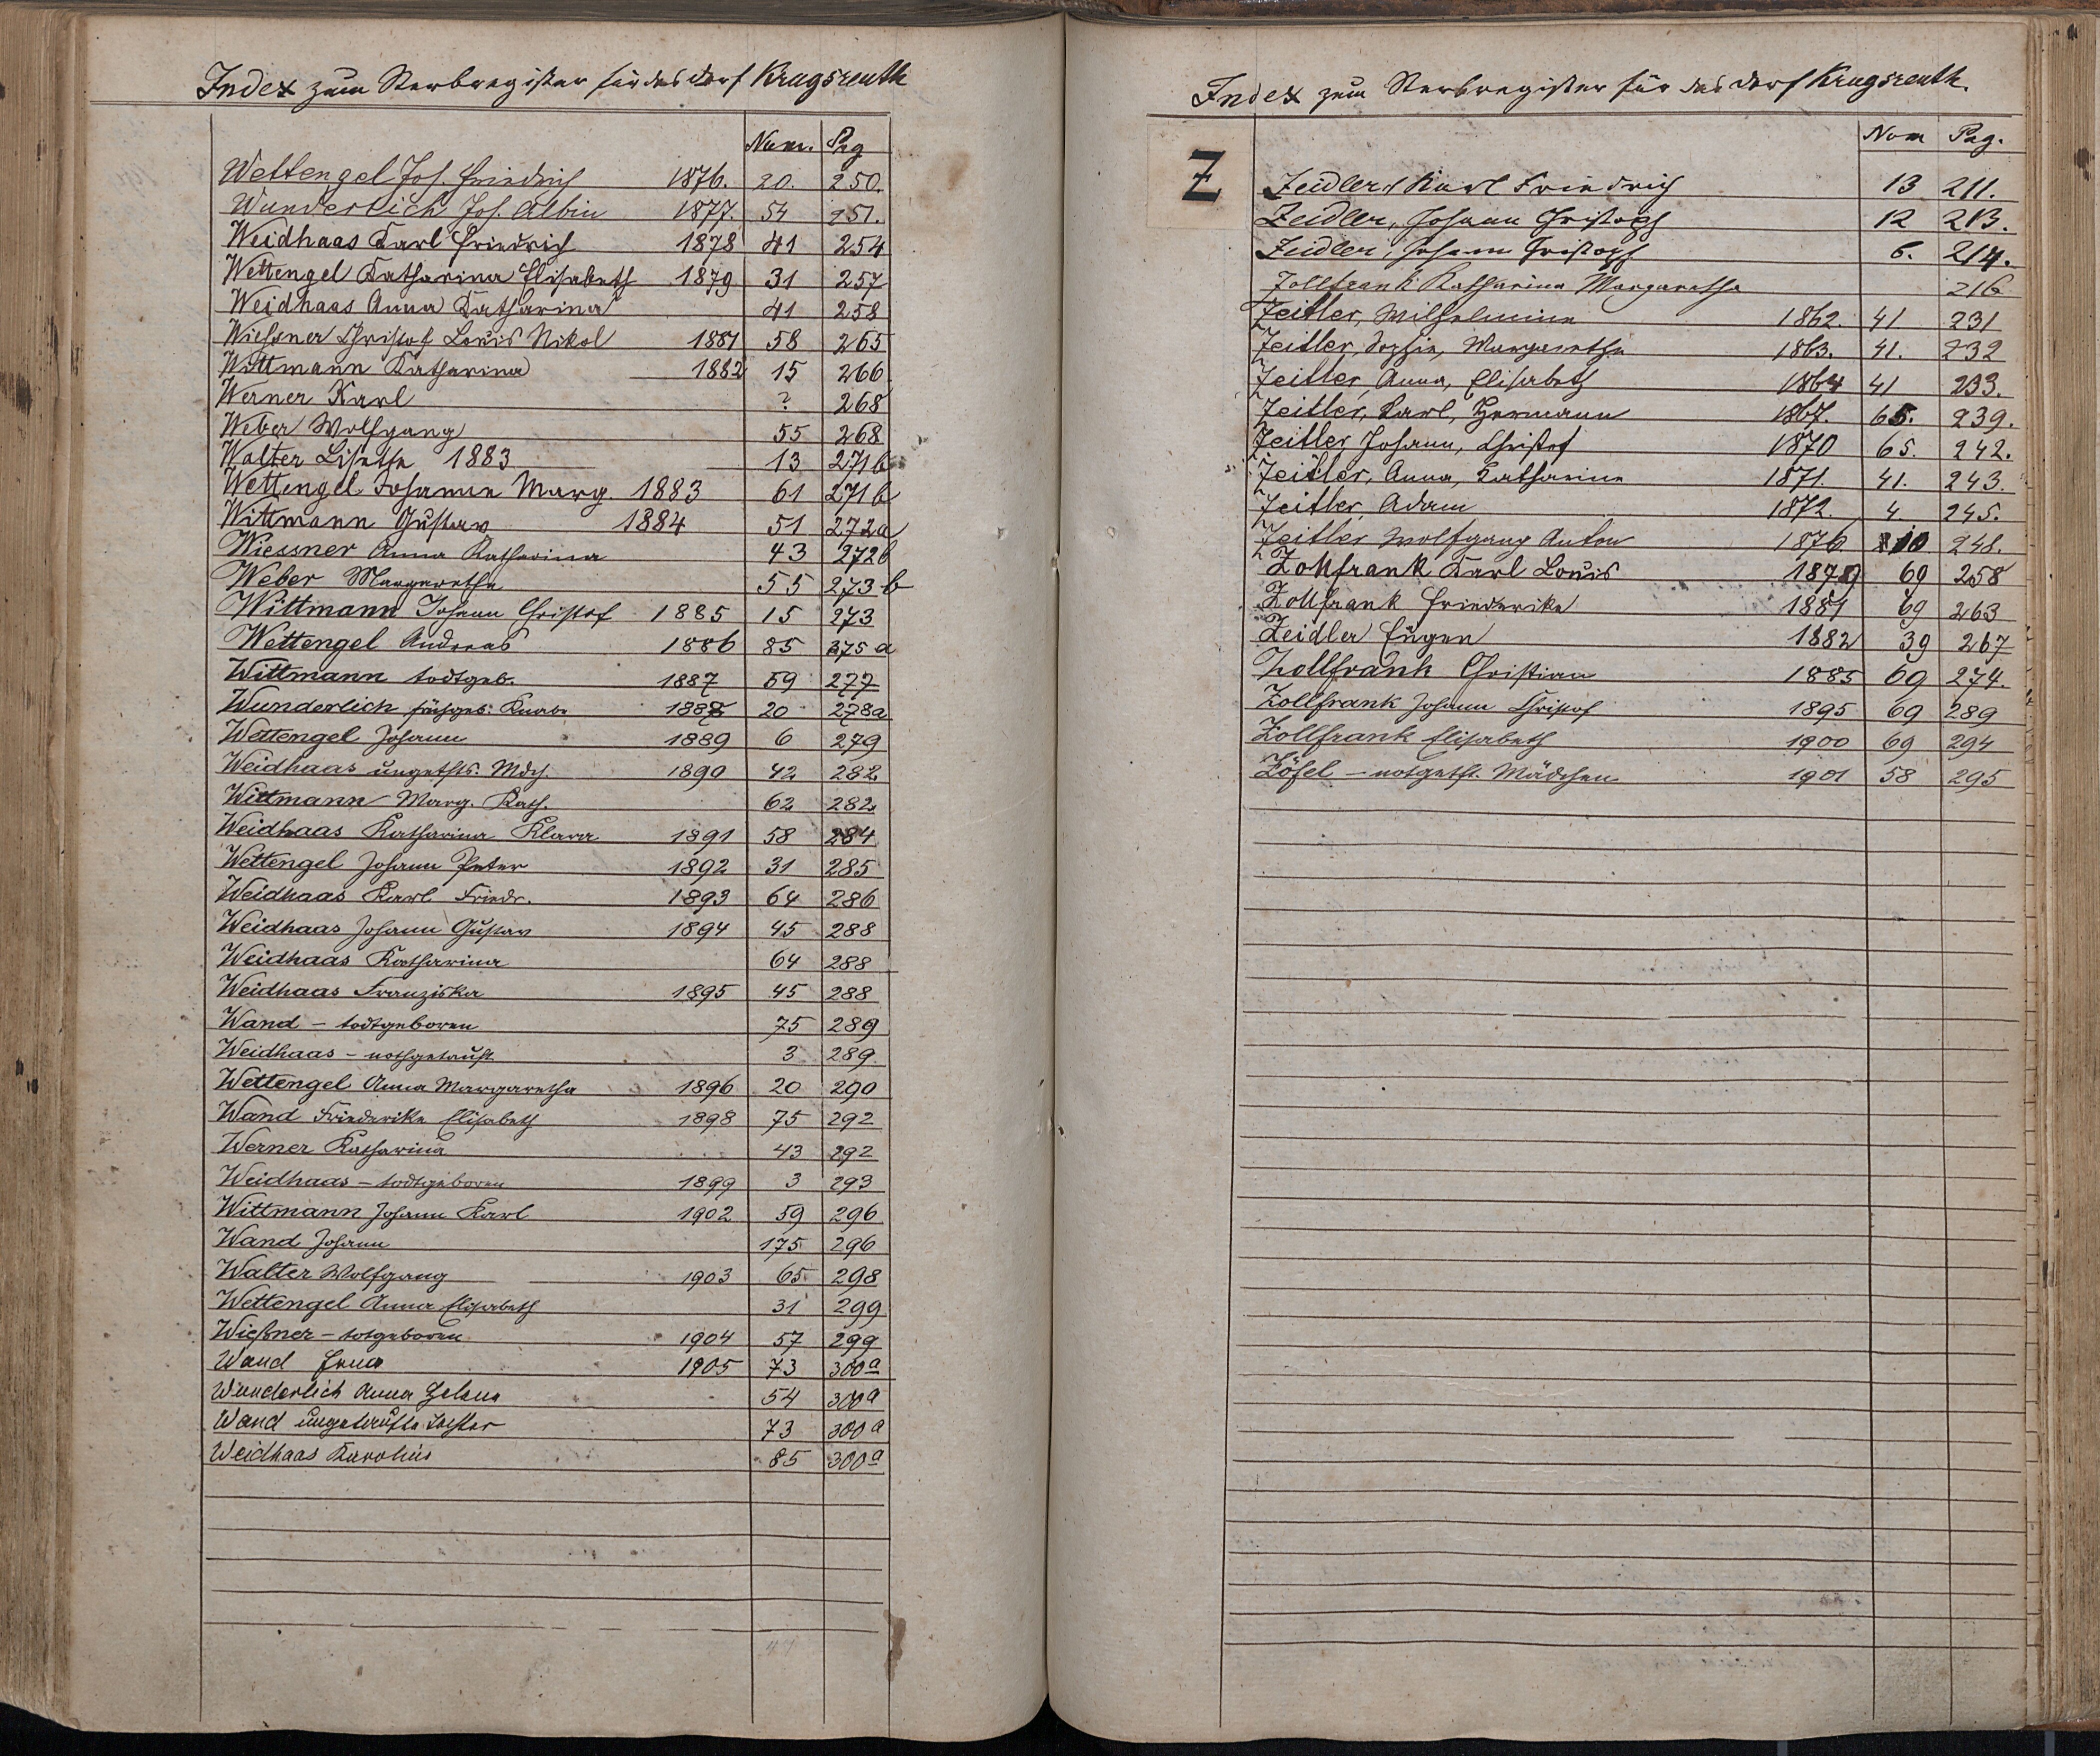 Index zum Sterbregister für das Dorf Krugsreuth
Num. Pag
Wettengel Joh. Friedrich 1876. 20. 250.
Wunderlich Joh. Albin 1877. 54 251.
Weidhaas Karl Friedrich 1878 41 254
Wettengel Katharina Elisabeth 1879 31 257
Weidhaas Anna Katharina 41 258
Wießner Christof Louis Nikol 1881 58 265
Wittmann Katharina 1882 15 266
Werner Karl ? 268
Weber Wolfgang 55 268
Walter Lisetta 1883 13 271b
Wettengel Johanna Marg. 1883 61 271b
Wittmann Gustav 1884 51 272a
Wiessner Anna Katharina 43 272b
Weber Margaretha 55 273b
Wittmann Johann Christof 1885 15 273
Wettengel Andreas 1886 85 275a
Wittmann todtgeb. 1887 59 277
Wunderlich frühgeb: Knabe 1888 20 278a
Wettengel Johann 1889 6 279
Weidhaas ungetfts: Mdch. 1890 42 282
Wittmann Marg. Kath. 62 282
Weidhaas Katharina Klara 1891 58 284
Wettengel Johann Peter 1892 31 285
Weidhaas Karl Friedr. 1893 64 286
Weidhaas Johann Gustav 1894 45 288
Weidhaas Katharina 64 288
Weidhaas Franziska 1895 45 288
Wand – todtgeboren 75 289
Weidhaas – nothgetauft 3 289
Wettengel Anna Margaretha 1896 20 290
Wand Friederike Elisabeth 1898 75 292
Werner Katharina 43 292
Weidhaas – todtgeboren 1899 3 293
Wittmann Johann Karl 1902 59 296
Wand Johann 175 296
Walter Wolfgang 1903 65 298
Wettengel Anna Elisabeth 31 299
Wießner – totgeboren 1904 57 299
Wand Erna 1905 73 300a
Wunderlich Anna Helena 54 300a
Wand ungetaufte Tochter 73 300a
Weidhaas Karolina 85 300a
Index zum Sterbregister für das Dorf Krugsreuth.
Nom Pag.
Z
Zeidler, Karl Friedrich 13 211.
Zeidler, Johann Christoph 12 213.
Zeidler, Johann Christoph 6. 214.
Zollfrank Katharina Margaretha 216
Zeitler, Wilhelmine 1862. 41 231
Zeitler, Sophie, Margaretha 1863. 41. 232
Zeitler, Anna, Elisabeth 1864 41 233.
Zeitler, Karl, Hermann 1867. 65. 239.
Zeitler, Johann, Christof 1870 65. 242.
Zeitler, Anna, Katharina 1871. 41. 243.
Zeitler, Adam 1872. 4. 245.
Zeitler, Wolfgang Anton 1876. 10 248.
Zollfrank Karl Louis 1879 69 258
Zollfrank Friederika 1881 69 263
Zeidler Eugen 1882 39 267
Zollfrank Christian 1885 69 274.
Zollfrank Johann Christof 1895 69 289
Zollfrank Elisabeth 1900 69 294
Zöfel – notgetft. Mädchen 1901 58 295